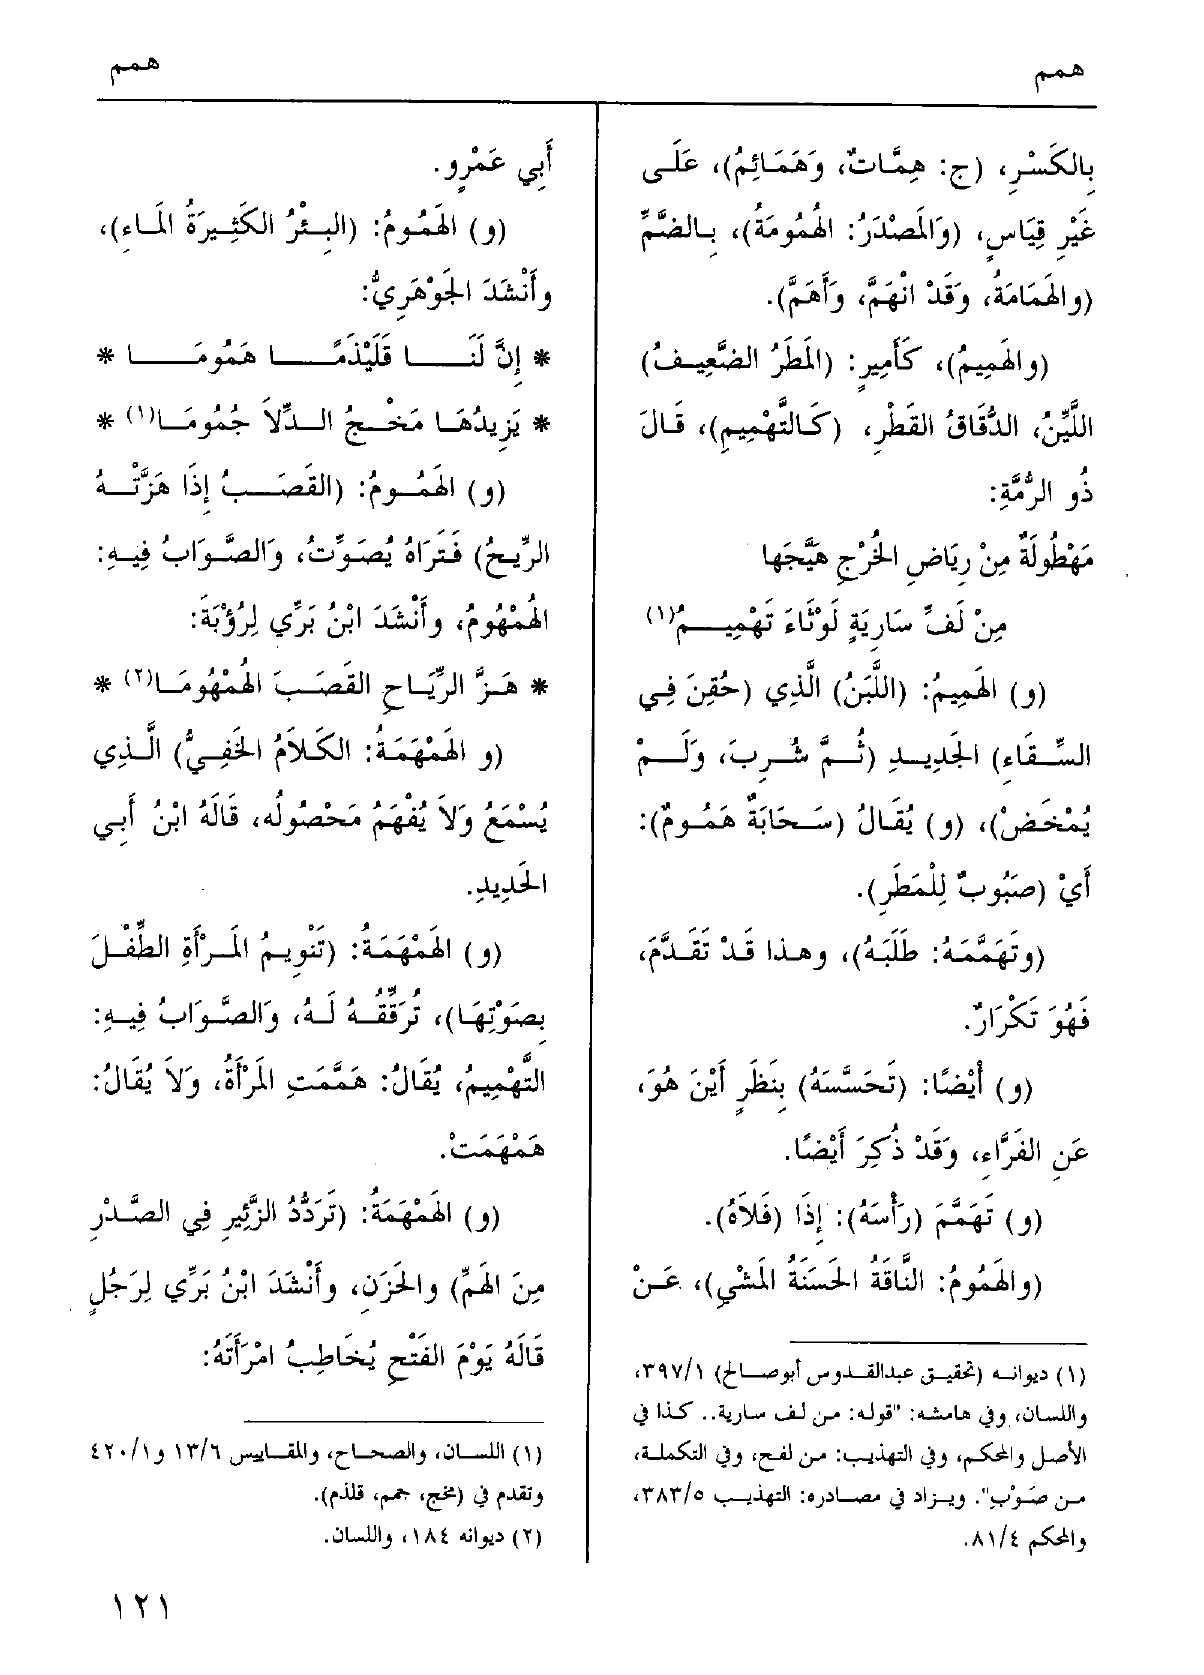 همم
همم
بِالكَسْرِ، (ج: هِمَّاتٌ، وَهَمَائِمُ)، عَلَى
غَيْرِ قِيَاسٍ، (وَالمَصْدَرُ: الهُمُومَةُ)، بِـالضَّمِّ
(والهَمَامَةُ، وَقَدْ انْهَمَّ، وَأَهَمَّ).
(والهَمِيمُ)، كَأَمِيرٍ: (المَطَرُ الضَّعِيـفُ)
اللَّيِّنُ، الدُّقَاقُ القَطْرِ، (كَـالتَّهْمِيمِ)، قَـالَ
ذُو الرُّمَّةِ:
مَهْطُولَةٌ مِنْ رِيَاضِ الخُرْجِ هَيَّجَها
مِنْ لَفِّ سَارِيَةٍ لَوْثَاءَ تَهْمِيـــمُ(١)
(و) الهَمِيمُ: (اللَّبَنُ) الَّذِي (حُقِنَ فِي
السِّـقَاءِ) الجَدِيـدِ (ثُـمَّ شُـرِبَ، وَلَـمْ
يُمْخَضْ)، (و) يُقَـالُ (سَـحَابَةٌ هَمُـومٌ):
أَيْ (صَبُوبٌ لِلْمَطَرِ).
(وتَهَمَّمَهُ: طَلَبَهُ)، وهـذا قَـدْ تَقَـدَّمَ،
فَهُوَ تَكْرَارٌ.
(و) أَيْضًا: (تَحَسَّسَهُ) بِنَظَرٍ أَيْنَ هُوَ،
عَنِ الفَرَّاءِ، وَقَدْ ذُكِرَ أَيْضًا.
(و) تَهَمَّمَ (رَأْسَهُ): إِذَا (فَلاَهُ).
(والهَمُومُ: النَّاقَةُ الحَسَنَةُ المَشْيِ)، عَـنْ
(١) ديوانـه (تحقيـق عبدالقـدوس أبوصـالح) ٣٩٧/١،
واللسان، وفي هامشه: "قوله: من لف سارية.. كذا في
الأصل والمحكم، وفي التهذيب: من لفح، وفي التكملة،
مـن صَوْبِ". ويـزاد في مصـادره: التهذيـب ٣٨٣/٥،
والمحكم ٨١/٤.
أَبِي عَمْرٍو.
(و) الهَمُومُ: (البِـئْرُ الكَثِـيرَةُ المَـاءِ)،
وأَنْشَدَ الجَوْهَرِيُّ:
* إِنَّ لَنَــــا قَلَيْذَمًــــا هَمُومَــــا *
* يَزِيدُهَـا مَخْـجُ الـدِّلاَ جُمُومَـا(١) *
(و) الهَمُـومُ: (القَصَـبُ إِذَا هَزَّتْـهُ
الرِّيـحُ) فَتَرَاهُ يُصَوِّتُ، وَالصَّوَابُ فِيـهِ:
الهُمْهُومُ، وأَنْشَدَ ابْنُ بَرِّي لِرُؤْبَةَ:
* هَـزَّ الرِّيَـاحِ القَصَـبَ الهُمْهُومَـا(٢) *
(و الهَمْهَمَةُ: الكَـلاَمُ الخَفِـيُّ) الَّـذِي
يُسْمَعُ وَلاَ يُفْهَمُ مَحْصُولُه، قَالَهُ ابْنُ أَبِي
الحَدِيدِ.
(و) الهَمْهَمَةُ: (تَنْوِيمُ المَـرْأَةِ الطِّفْـلَ
بِصَوْتِهَـا)، تُرَقِّقُـهُ لَـهُ، وَالصَّـوَابُ فِيـهِ:
التَّهْمِيمُ، يُقَالُ: هَمَّمَتِ المَرْأَةُ، وَلاَ يُقَالُ:
هَمْهَمَتْ.
(و) الهَمْهَمَةُ: (تَرَدُّدُ الزَّئِيرِ فِي الصَّـدْرِ
مِنَ الهَمِّ) والحَزَنِ، وأَنْشَدَ ابْنُ بَرِّي لِرَجُلٍ
قَالَهُ يَوْمَ الفَتْحِ يُخَاطِبُ امْرَأَتَهُ:
(١) اللسـان، والصحـاح، والمقـاييس ١٣/٦ و٤٢٠/١
وتقدم في (مخج، جمم، قلذم).
(٢) ديوانه ١٨٤، واللسان.
١٢١